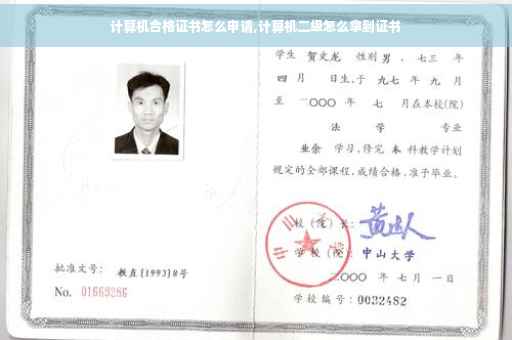 计算机合格证书怎么申请,计算机二级怎么拿到证书
学生 贺文龙 性别 男 、七三 年
四 月 日生,于 九七 年 九 月
至 二〇〇〇 年 七 月在本校(院)
法 学 专业
业余 学习,修完 本 科教学计划
规定的全部课程,成绩合格,准予毕业。
校(院)长:
学校(院): 中山大学
二〇〇〇 年 七 月 一 日
批准文号: 教直[1993]8号
No. 01669286
学校编号: 0032482
中山大学